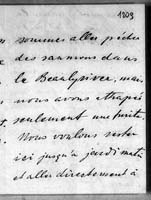 1903
sommes allés pêcher
des saumons dans
le Beauly river, mais
nous avons attrapé
seulement une petite.
Nous voulons rester
ici jusqu'à jeudi matin
et aller directement à